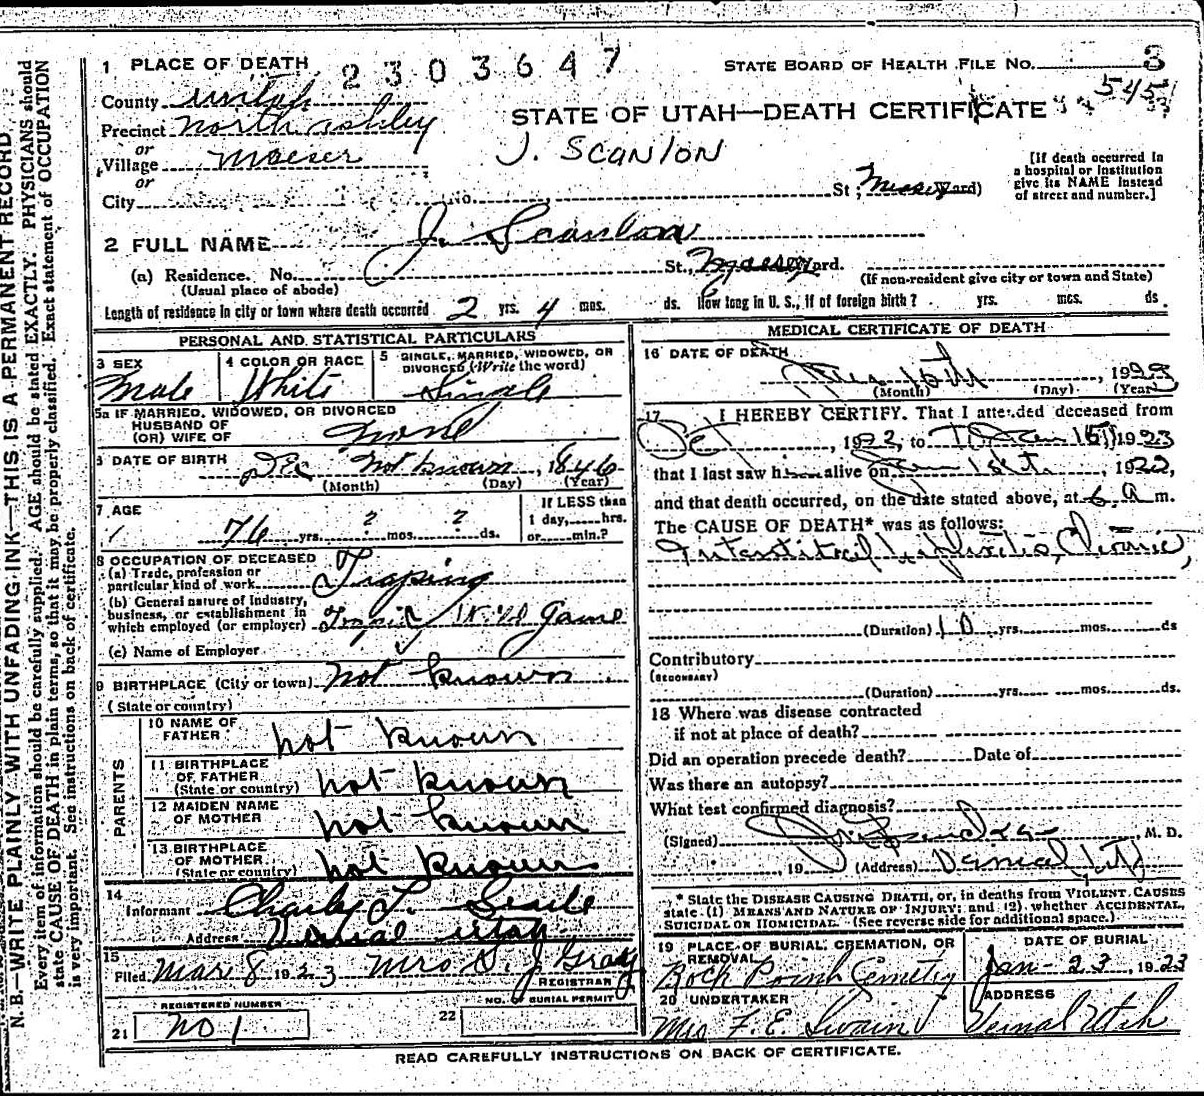 1 PLACE OF DEATH 2303647 STATE BOARD OF HEALTH FILE NO. 3
County Uintah 545
Precinct North Ashley STATE OF UTAH—DEATH CERTIFICATE
or
Village Maeser J. SCANLON
or
City No. St; Ward)
[If death occurred in a hospital or institution give its NAME instead of street and number.]
2 FULL NAME J. Scanlon
(a) Residence. No. St., Ward.
(Usual place of abode) (If non-resident give city or town and State)
Length of residence in city or town where death occurred 2 yrs. 4 mos. ds. How long in U. S., if of foreign birth? yrs. mos. ds.
PERSONAL AND STATISTICAL PARTICULARS
3 SEX 4 COLOR OR RACE 5 SINGLE, MARRIED, WIDOWED, OR DIVORCED (Write the word)
Male White Single
5a IF MARRIED, WIDOWED, OR DIVORCED
HUSBAND OF
(OR) WIFE OF None
6 DATE OF BIRTH Dec not known, 1846
(Month) (Day) (Year)
7 AGE 76 yrs. ? mos. ? ds.
If LESS than
1 day, hrs.
or min.?
8 OCCUPATION OF DECEASED
(a) Trade, profession or
particular kind of work Traping
(b) General nature of industry,
business, or establishment in
which employed (or employer) Wild Game
(c) Name of Employer
9 BIRTHPLACE (City or town) Not known
(State or country)
PARENTS
10 NAME OF
FATHER not known
11 BIRTHPLACE
OF FATHER
(State or country) not known
12 MAIDEN NAME
OF MOTHER not known
13 BIRTHPLACE
OF MOTHER
(State or country) not known
14
Informant Charley L.
Address Vernal Utah
15
Filed Mar 8 1923 Mrs S. J Gray
REGISTRAR
REGISTERED NUMBER
21 No 1
NO. OF BURIAL PERMIT
22
MEDICAL CERTIFICATE OF DEATH
16 DATE OF DEATH 1923
(Month) (Day) (Year)
17 I HEREBY CERTIFY. That I attended deceased from
Oct, 1922, to Jan 15, 1923
that I last saw h alive on, 1922
and that death occurred, on the date stated above, at 6 a m.
The CAUSE OF DEATH* was as follows:
Interstitial Nephritis, Chronic,
(Duration) 10 yrs. mos. ds
Contributory
(SECONDARY)
(Duration) yrs. mos. ds.
18 Where was disease contracted
if not at place of death?
Did an operation precede death? Date of
Was there an autopsy?
What test confirmed diagnosis?
(Signed), M. D.
, 19 (Address) Vernal, Ut
* State the DISEASE CAUSING DEATH, or, in deaths from VIOLENT CAUSES
state (1) MEANS AND NATURE OF INJURY; and (2), whether ACCIDENTAL,
SUICIDAL OR HOMICIDAL. (See reverse side for additional space.)
19 PLACE OF BURIAL, CREMATION, OR REMOVAL DATE OF BURIAL
Rock Point Cemetery Jan- 23, 1923
20 UNDERTAKER ADDRESS
Mrs F. E. Swain Vernal Utah
READ CAREFULLY INSTRUCTIONS ON BACK OF CERTIFICATE.
N. B.—WRITE PLAINLY WITH UNFADING INK—THIS IS A PERMANENT RECORD
Every item of information should be carefully supplied. AGE should be stated EXACTLY. PHYSICIANS should
state CAUSE OF DEATH in plain terms, so that it may be properly classified. Exact statement of OCCUPATION
is very important. See instructions on back of certificate.